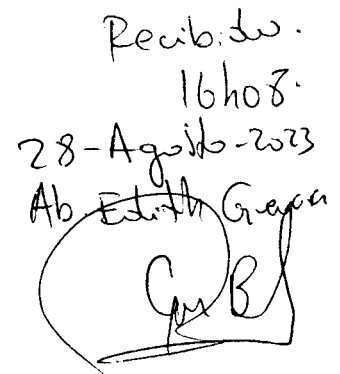 Recibido.
16h08.
28-Agosto-2023
Ab. Edith